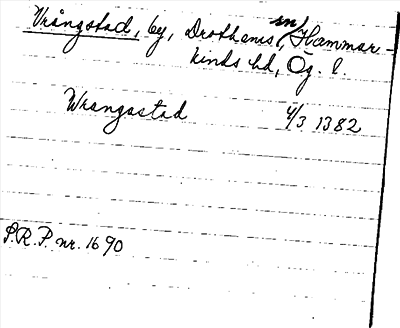 Vrångstad, by, Drothems sn, Hammar-
kinds hd, Ög. l.
Wrangastad 4/3 1382
P.R.P. nr. 1690